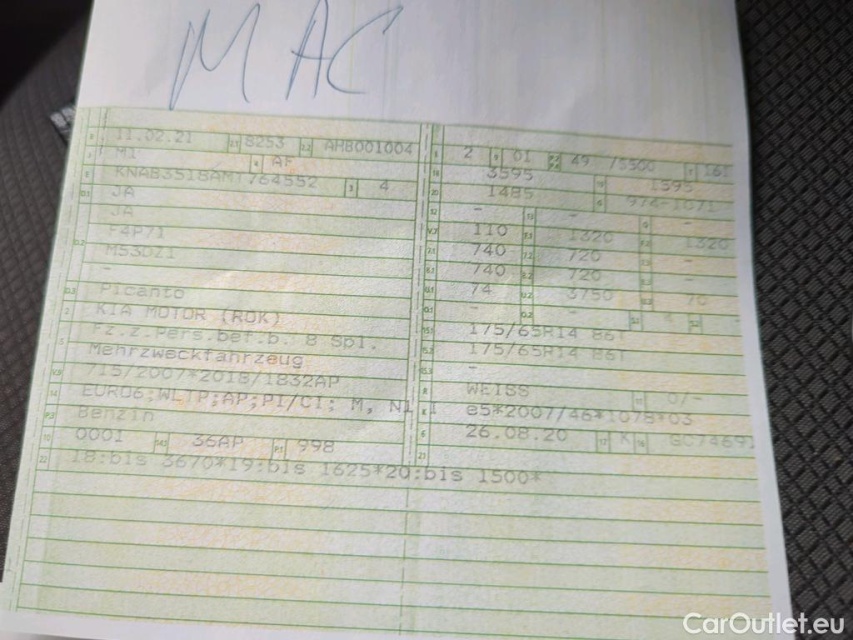 MAC
11.02.21 8253 AHB001004
M1 AF
KNAB3518AMT764552 3 4
JA
JA
F4P71
M53DZ1
-
Picanto
KIA MOTOR (ROK)
Fz.z.Pers.bef.b. 8 Spl.
Mehrzweckfahrzeug
715/2007*2018/1832AP
EURO6;WLTP;AP;PI/CI; M, N1 I
Benzin
0001 36AP 998
18:bis 3670*19:bis 1625*20:bis 1500*
2 01 49 /5500 161
3595 1595
1485 974-1071
- - -
110 1320 1320
740 720 -
740 720 -
74 3750 70
- - 4
175/65R14 86T
175/65R14 86T
-
WEISS 0/-
e5*2007/46*1078*03
26.08.20 K GC74691
CarOutlet.eu